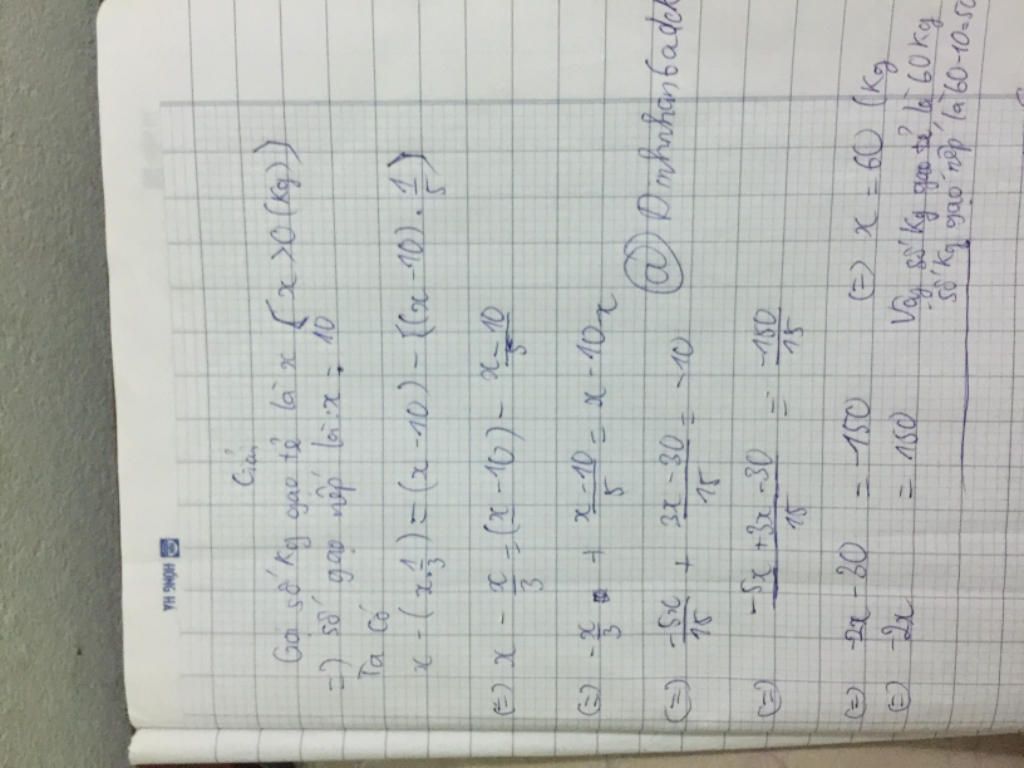 HONG HA
Giải
Gọi số kg gạo tẻ là x [x > 0 (kg))
=) số gạo nếp là: x - 10
Ta có
x - (x . 1/3) = (x - 10) - [(x - 10) . 1/5)
(=) x - x/3 = (x - 10) - x - 10/5
(=) - x/3 + x - 10/5 = x - 10 x
(=) -5x/15 + 3x - 30/15 = -10
(a) Dmhnhan6adck
(=) -5x + 3x - 30/15 = -150/15
(=) -2x - 30 = -150
(=) x = 60 (kg
(=) -2x = 150
Vậy số kg gạo tẻ là 60 kg
số kg gạo nếp là 60 - 10 = 50